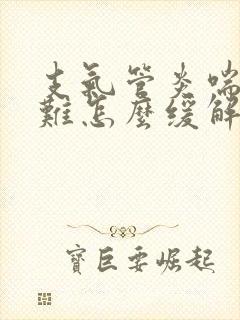 支氣管炎喘
難怎麼緩解
寶巨要崛起